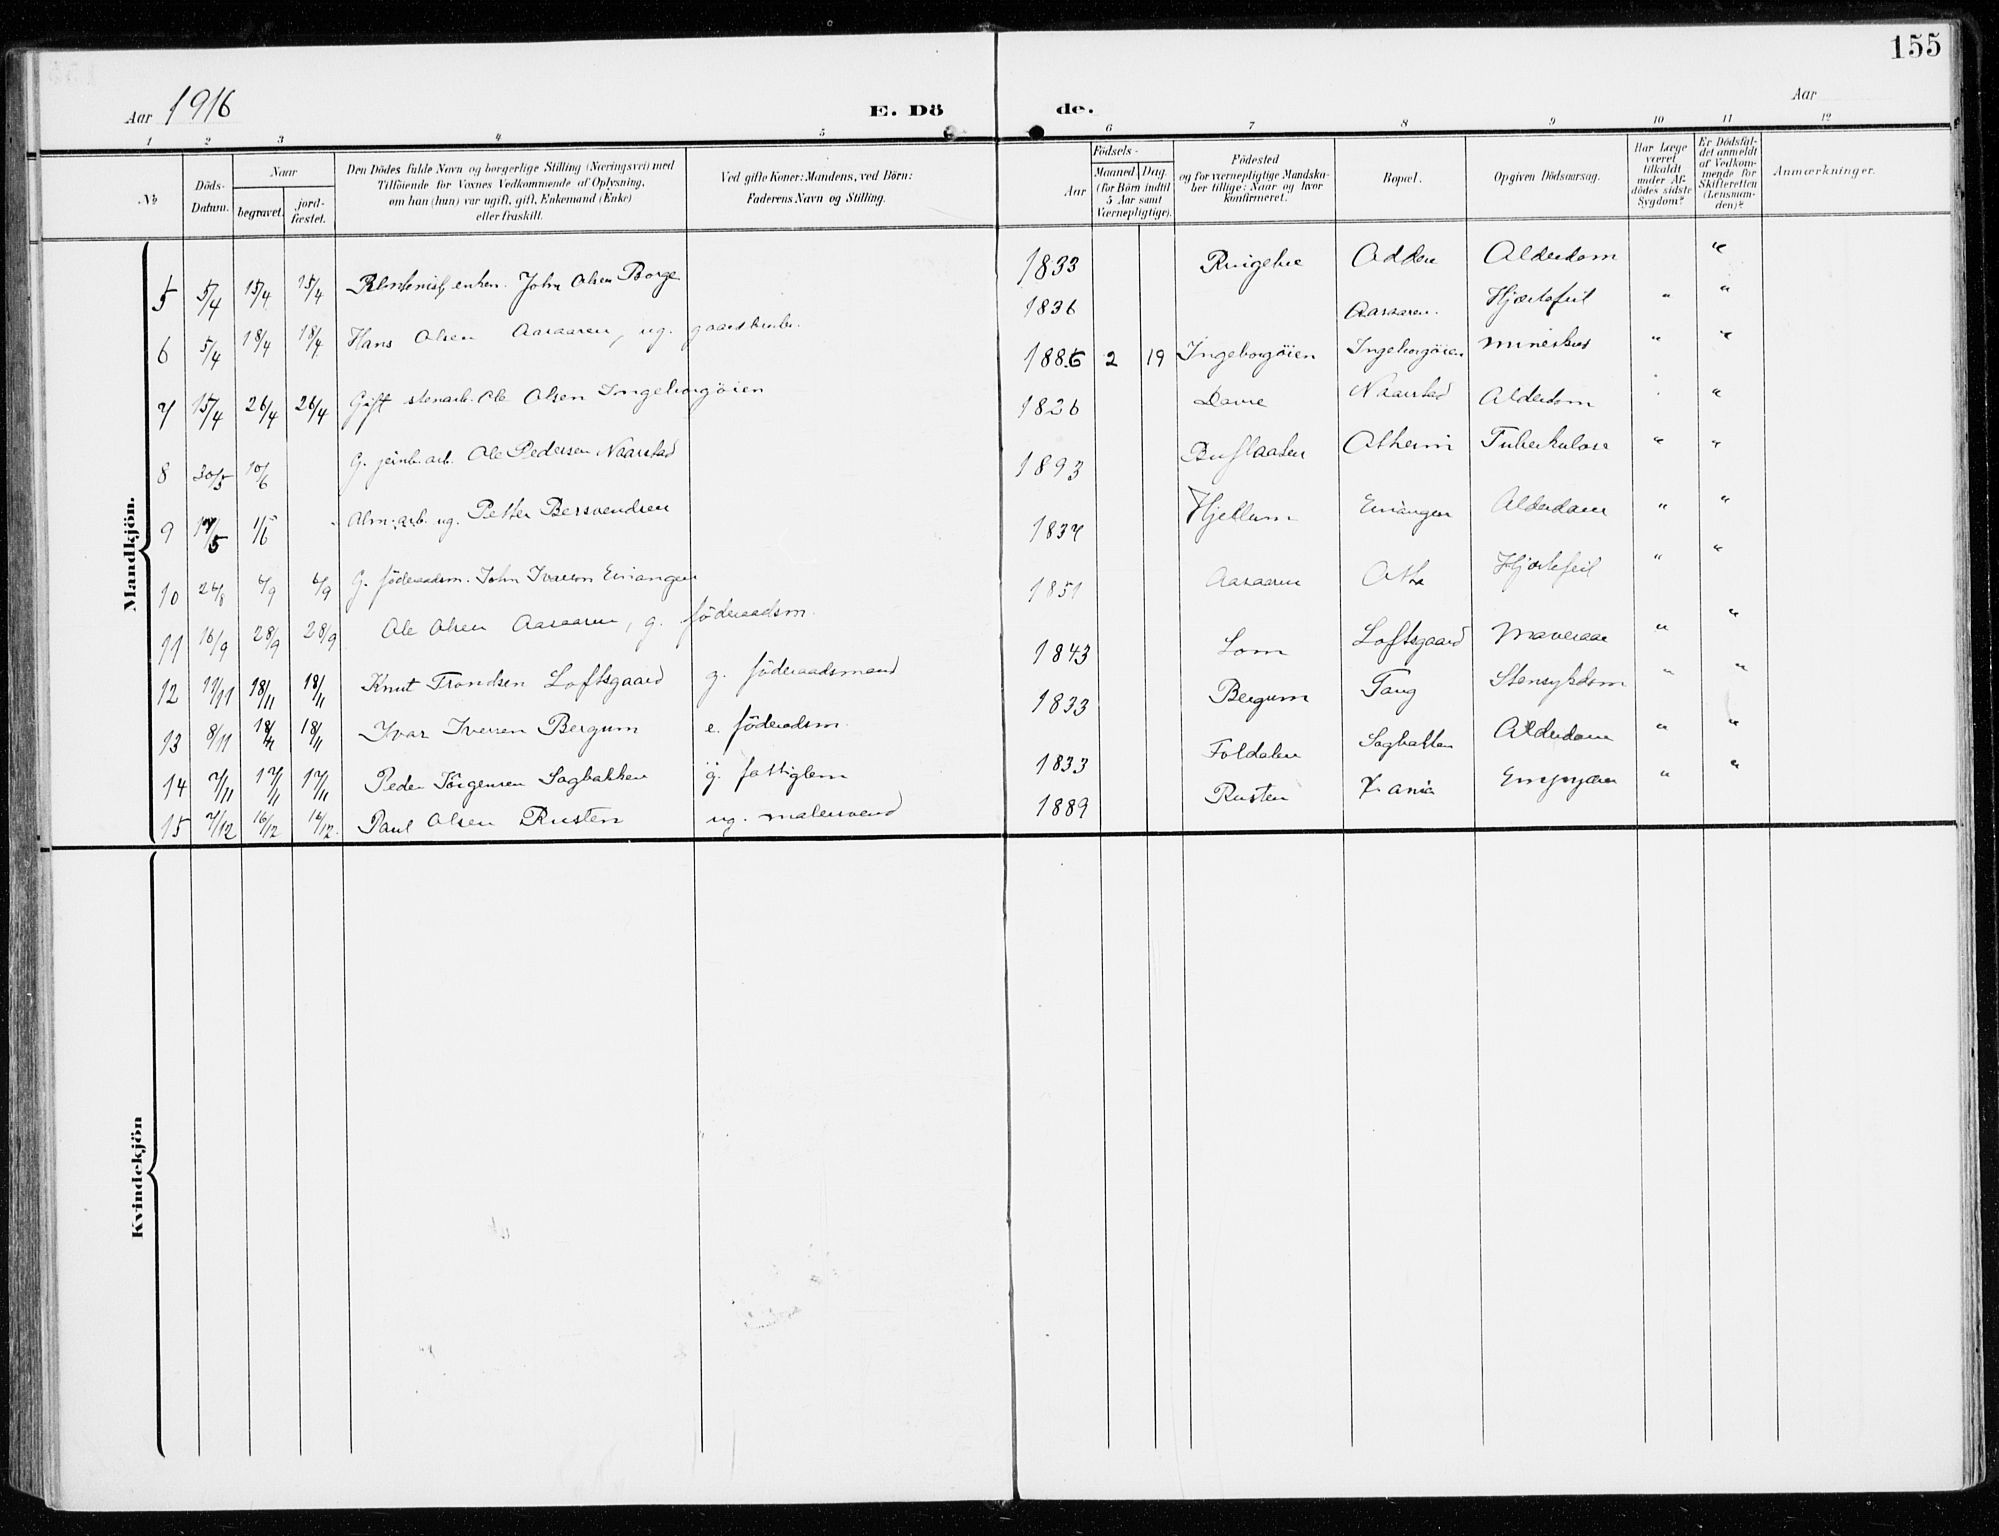 155
Aar 1916
E. Dö de.
Aar
1 2 3 4 5 6 7 8 9 10 11 12
No
Döds-Datum.
Naar
begravet.
jord-fæstet.
Den Dödes fulde Navn og borgerlige Stilling (Næringsvei) med
Tilföiende for Voxnes Vedkommende af Oplysning,
om han (hun) var ugift, gift, Enkemand (Enke)
eller fraskilt.
Ved gifte Koner: Mandens, ved Börn:
Faderens Navn og Stilling.
Födsels-
Aar
Maaned Dag
(for Börn indtil
5 Aar samt
Værnepligtige).
Födested
og for værnepligtige Mandska-
ber tillige: Naar og hvor
konfirmeret.
Bopæl.
Opgiven Dödsaarsag.
Har Læge
været
tilkaldt
under Af-
dödes sidste
Sygdom?
Er Dödsfal-
det anmeldt
af Vedkom-
mende for
Skifteretten
(Lensman-
den)?
Anmærkninger.
Mandkjön.
5 5/4 15/4 15/4 enkem. John Olsen Borge 1833 Ringebu Alderdom "
6 5/4 18/4 18/4 Hans Olsen Aasaaren, ug. 1836 Aasaaren. Hjertefeil " "
7 15/4 26/4 26/4 Gift stenarb. Ole Olsen Ingeborgöien 1886 2 19 Ingeborgöien Ingeborgöien mineskud " "
8 30/5 10/6 G. jernb.arb. Ole Pedersen Naarstad 1826 Dovre Naarstad Alderdom "
9 17/5 1/6 Alm. arb. ug. Petter Bersvendsen 1893 Atheim Tuberkulose " "
10 26/8 6/9 6/9 G. föderaadsm. John Iversen 1834 Hjellum Alderdom " "
11 16/9 28/9 28/9 Ole Olsen Aasaaren, g. föderaadsm. 1851 Aasaaren Hjertefeil " "
12 11/11 18/11 18/11 Knut Trondsen Loftsgaard g. föderaadsmand 1843 Lom Loftsgaard " "
13 8/11 18/11 18/11 Ivar Iversen Bergum e. föderaadsm. 1833 Bergum Stensykdom " "
14 7/11 17/11 17/11 Peder Jörgensen Sagbakken g. fattiglem 1833 Foldalen Sagbakken Alderdom " "
15 7/12 16/12 16/12. Paul Olsen Rusten ug. malersvend 1889 Rusten " "
Kvindekjön